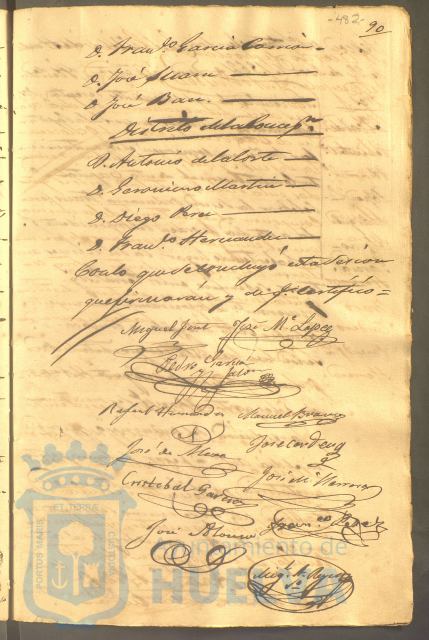 -482-
90
D. Fran.co Garcia Comin
D. José Suarez
D. José Barr
Distrito de la Concep.n
D. Antonio de la Corte
D. Geronimo Martin
D. Diego Perez
D. Fran.co Hernandez
Con lo que se concluyó esta sesion
que firmarán y de q. certifico =
Miguel
José M.a Lopez
Pedro Garcia
y
Rafael Hernandez
Manuel Bravo
José de Mora
Jose
Cristobal Garcia
José M. Herrera
José Alonso
Fran.co Perez
PORTUS MARIS
ET TERRE
CUSTODIA
Ayuntamiento de
HUELVA